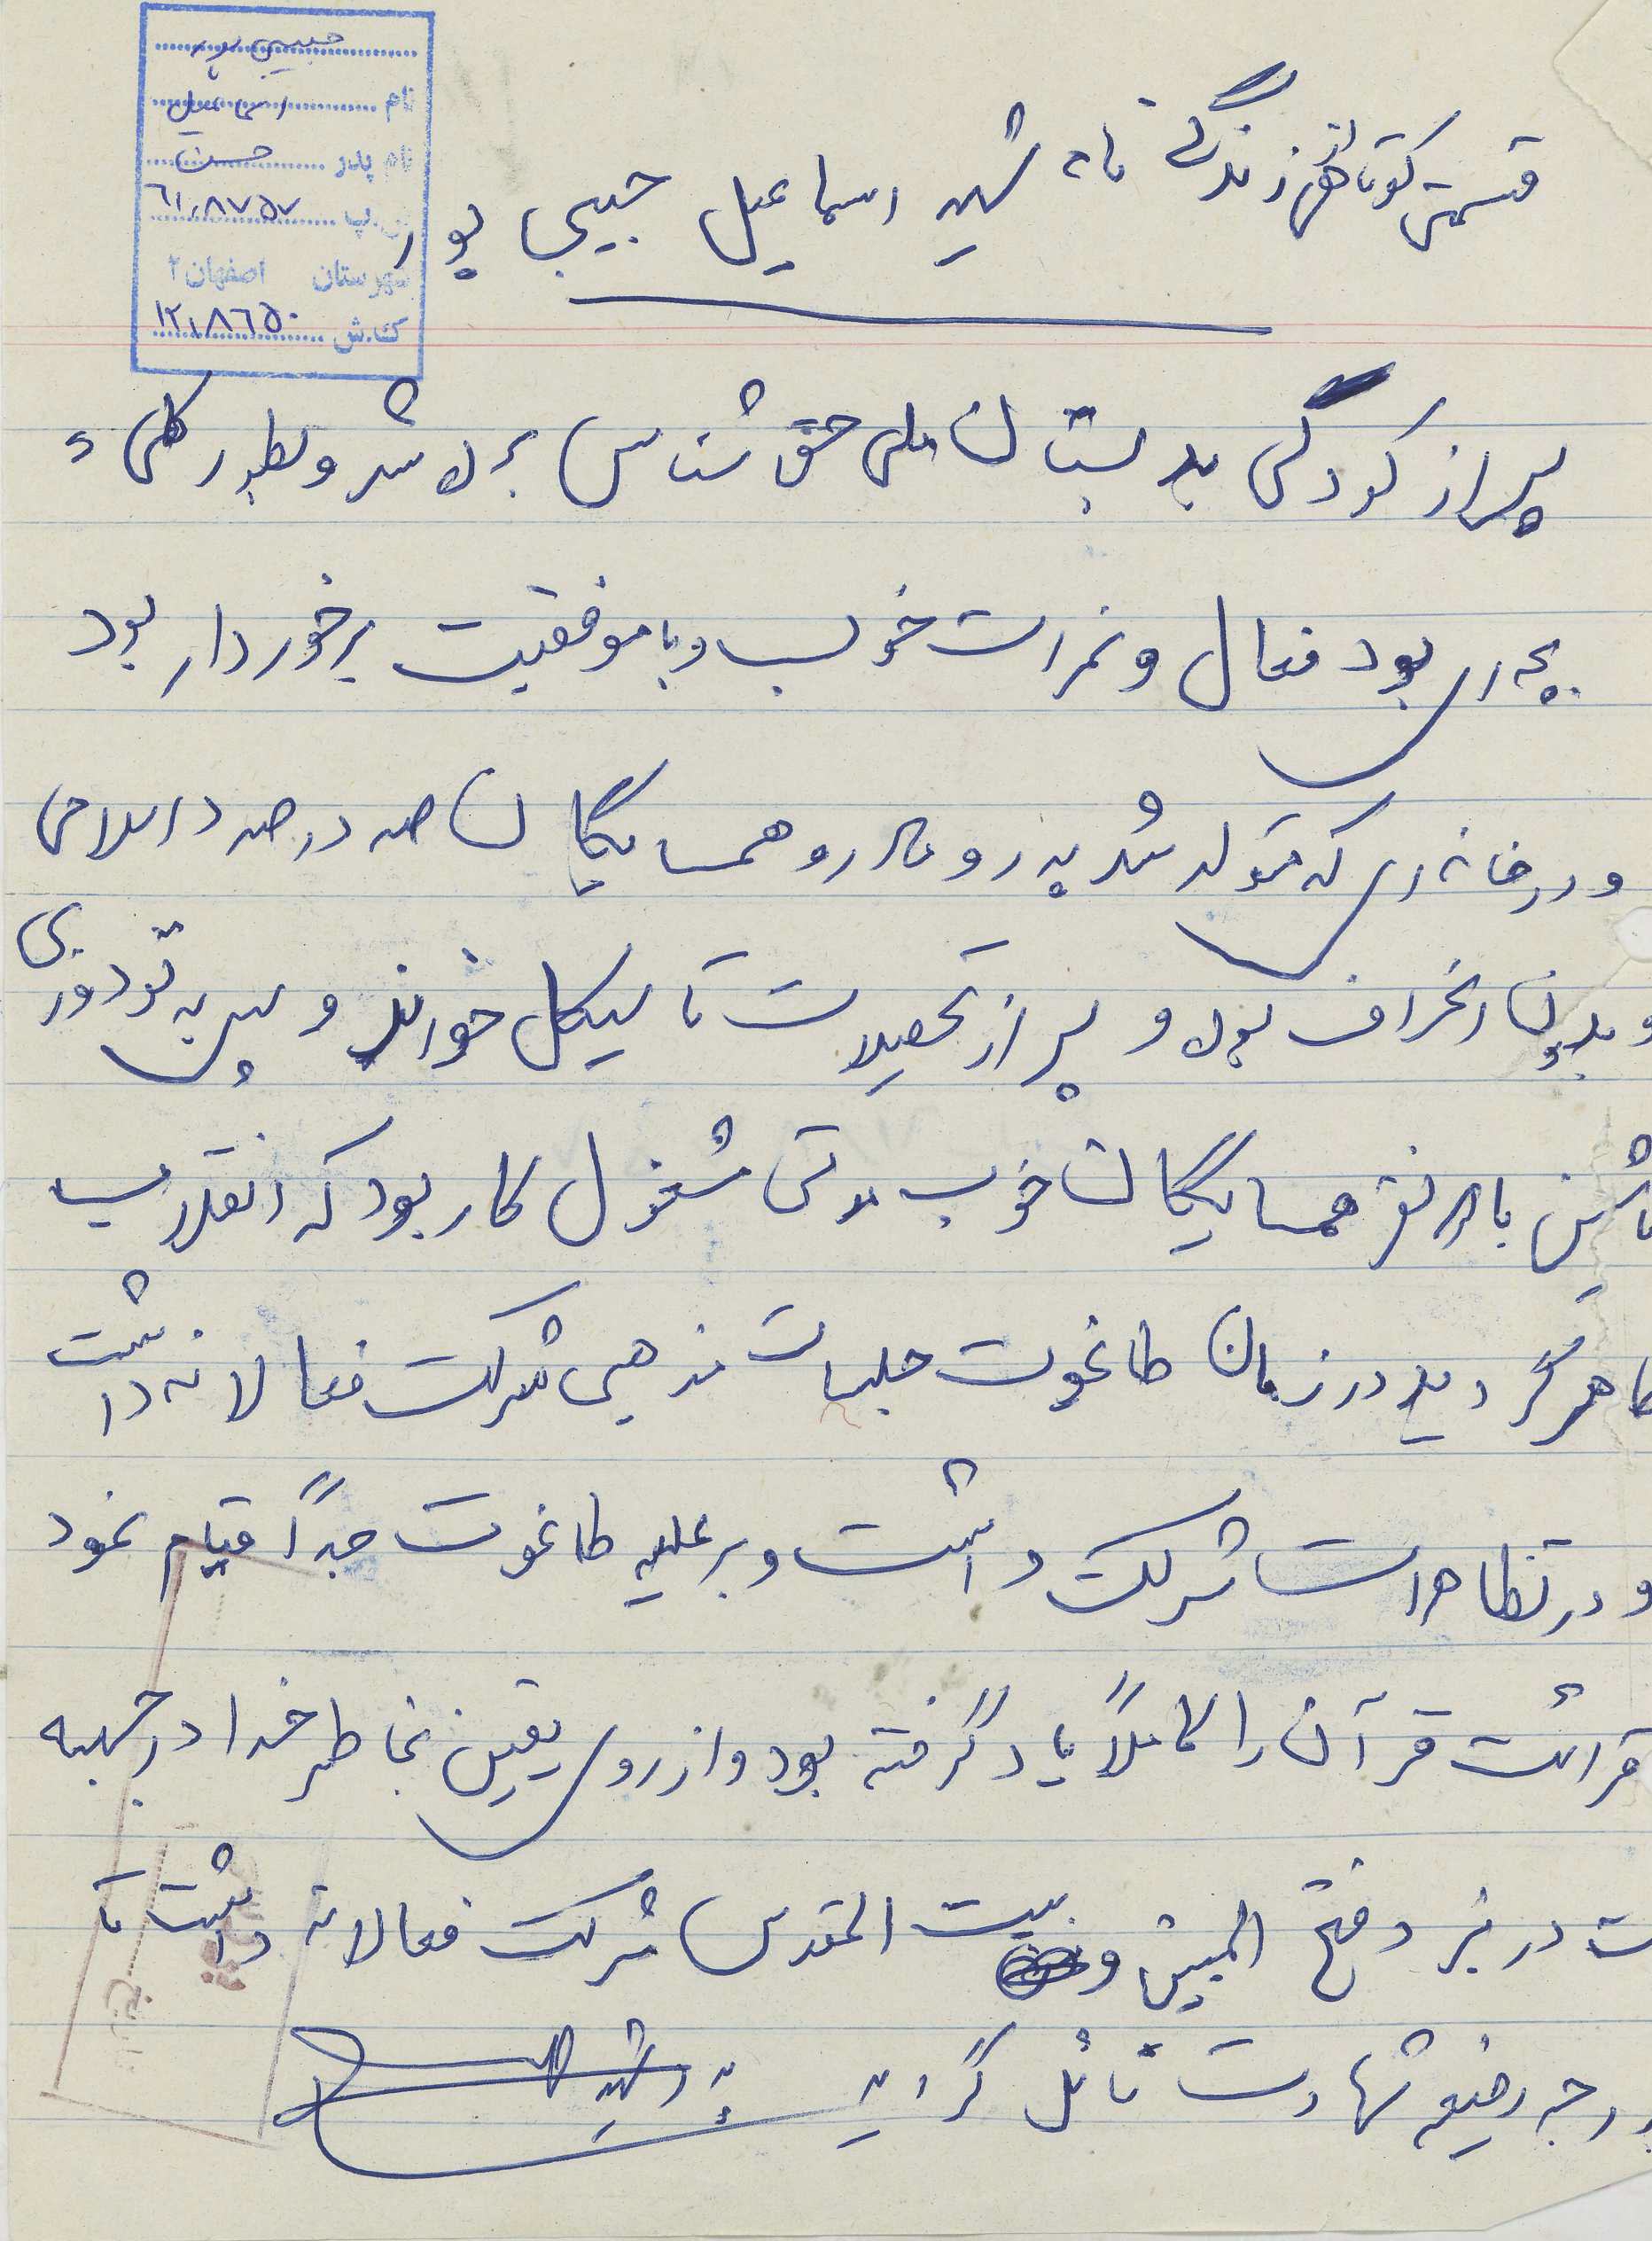 حبیبی پور
نام اسماعیل
نام پدر حسن
ش.پ ٦١٫٨٧٥٧
شهرستان اصفهان ٢
ک.ش ١٢٫٨٦٥٠
قسمتی کوتاهی از زندگی نامه شهید اسماعیل حبیبی پور
پس از کودکی بدبستان ملی حق شناس برده شد و بطور کلی
بچه ای بود فعال و نمرات خوب و با موفقیت برخوردار بود
و در خانه ای که متولد شد پدر و مادر و همسایگان صد در صد اسلامی
و بدون انحراف بود و پس از تحصیلات تا سیکل خواند و سپس به تودوزی
ماشین با همسایگان خوب مدتی مشغول کار بود که انقلاب
ظاهر گردید در زمان طاغوت جلسات مذهبی شرکت فعالانه داشت
و در تظاهرات شرکت داشت و بر علیه طاغوت جداً قیام نمود
قرائت قرآن را کاملاً یاد گرفته بود و از روی یقین بخاطر خدا در جبهه
در نبرد فتح المبین و بیت المقدس شرکت فعالانه داشت تا
بدرجه رفیع شهادت نائل گردید پدر شهید
تاریخ